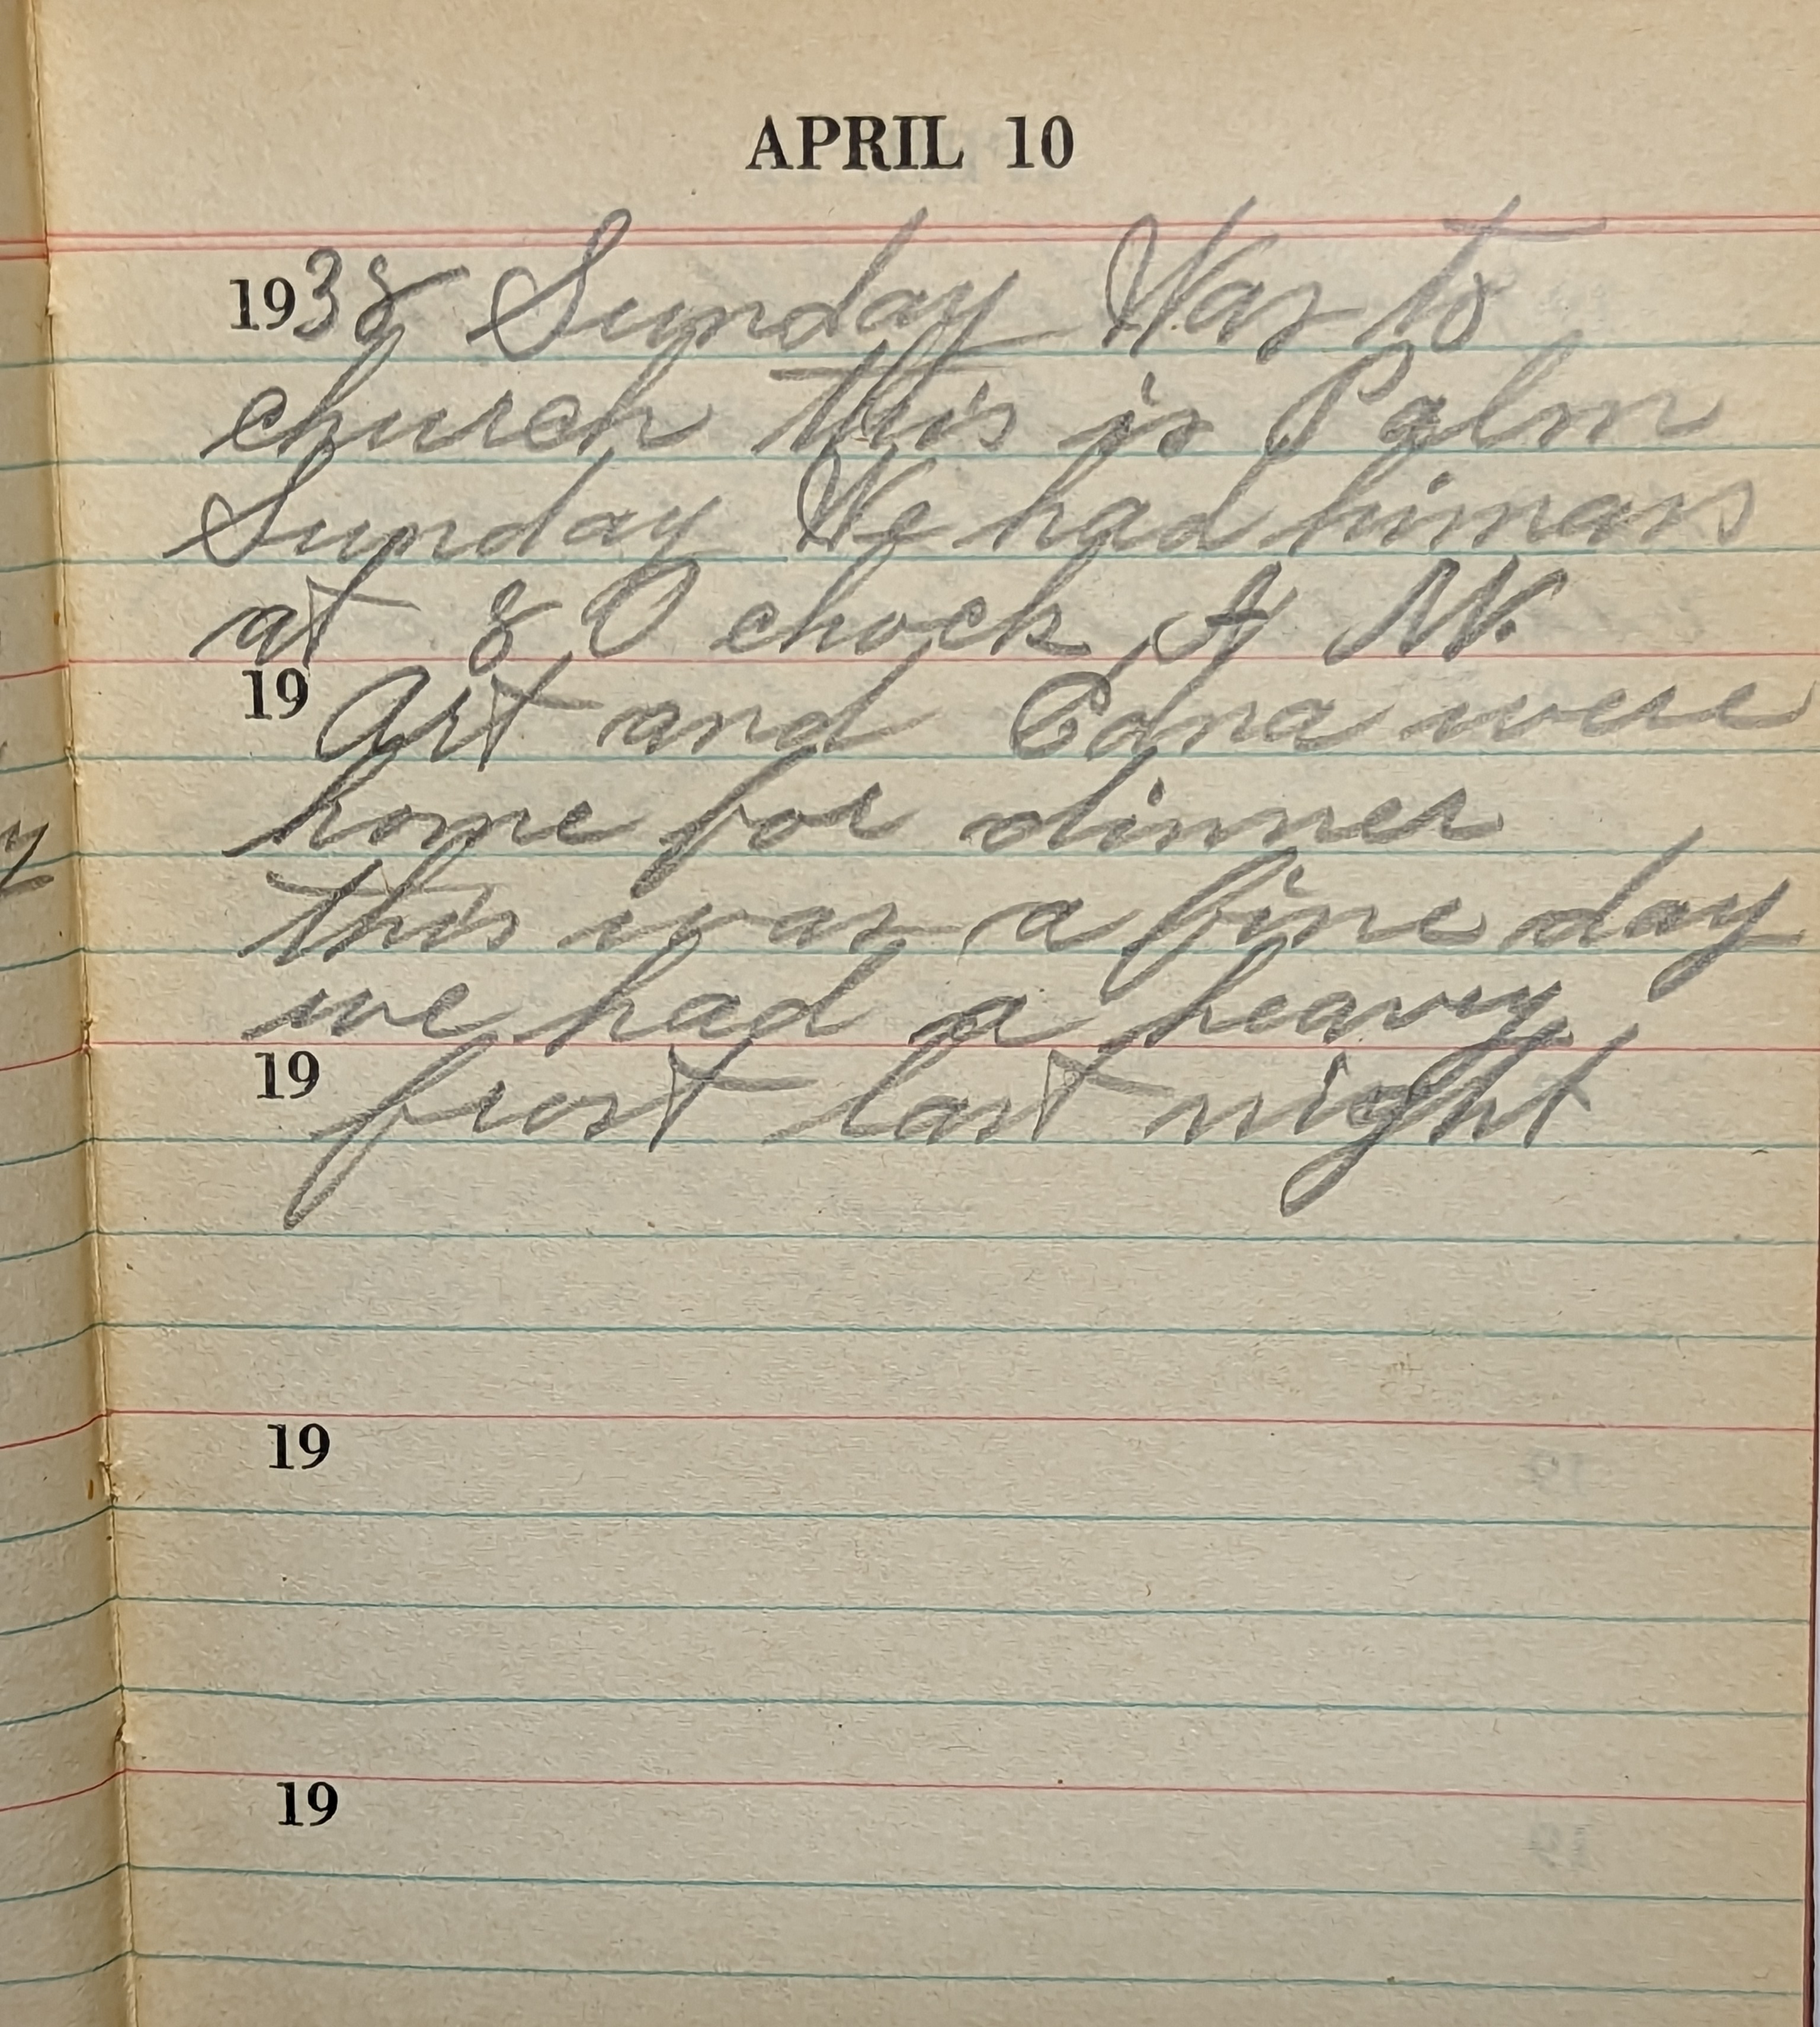 APRIL 10
1938 Sunday Was to
church this is Palm
Sunday We had
at 8 O clock A M.
19 Art and Edna were
home for dinner
this was a fine day
we had a heavy
19 frost last night
19
19